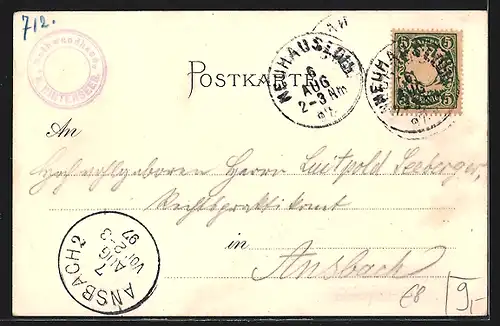 712.
POSTKARTE
NEUHAUSEN
6
AUG
2-3 Nm
97
5 5
An
Hochwohlgeboren Herrn Luitpold Seeberger,
Rechtspraktikant
in
Ansbach
ANSBACH 2
7
AUG
Vor. 2-3
97
E8
9,-